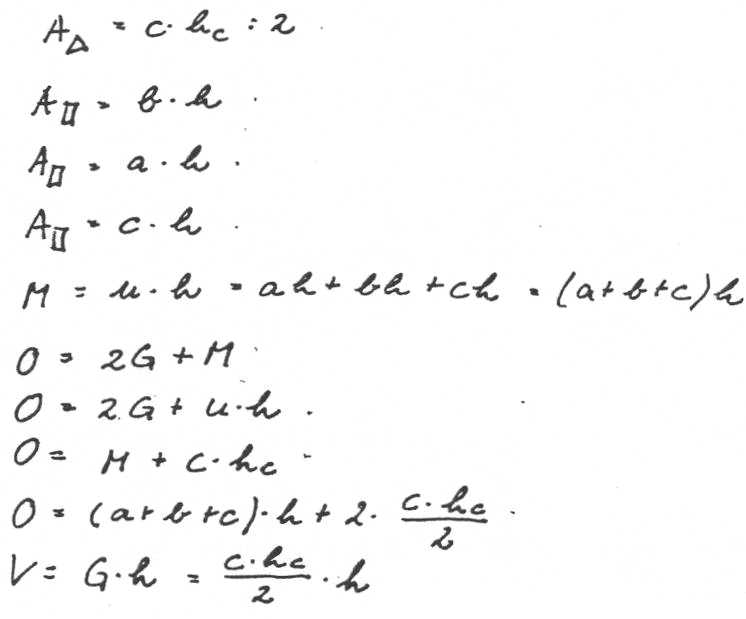 A△ = c · hc : 2
A▯ = b · h
A▯ = a · h
A▯ = c · h
M = u · h = ah + bh + ch = (a + b + c) h
O = 2G + M
O = 2G + u · h
O = M + c · hc
O = (a + b + c) · h + 2 · c · hc / 2
V = G · h = c · hc / 2 · h